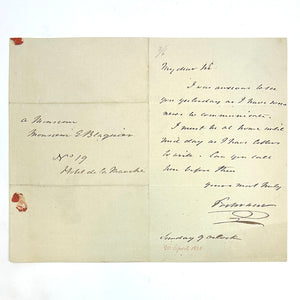 A Monsieur
Monsieur E Blaquier
No 19
Hotel de la Manche
My dear Sir
I was anxious to see
you yesterday as I have some
news to communicate.
I must be at home until
mid day as I have letters
to write. Can you call
here before then
Yours most truly
Sunday 9 o'clock
20 April 1823